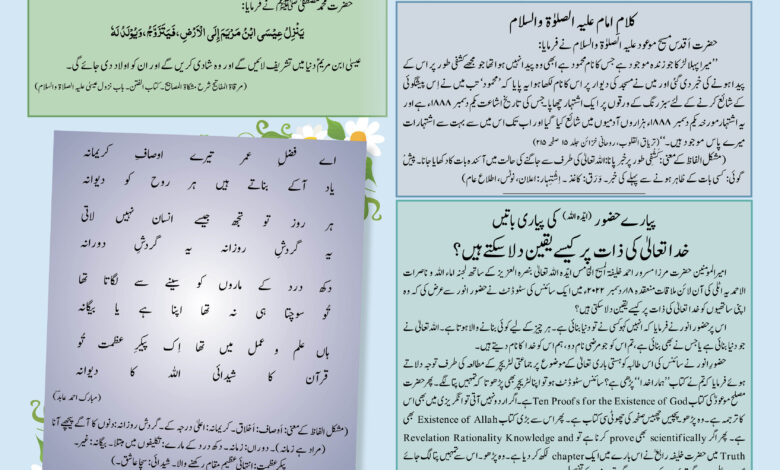 کلام امام علیہ الصلوٰۃ والسلام
حضرت اَقدس مسیح موعود علیہ الصلوٰۃ والسلام نے فرمایا:
”میرا پہلا لڑکا جو زندہ موجود ہے جس کا نام محمود ہے ابھی وہ پیدا نہیں ہوا تھا جو مجھے کشفی طور پر اس کے
پیدا ہونے کی خبر دی گئی اور میں نے مسجد کی دیوار پر اس کا نام لکھا ہوا یہ پایا کہ ’محمود‘ تب میں نے اس پیشگوئی
کے شائع کرنے کے لئے سبز رنگ کے ورقوں پر ایک اشتہار چھاپا، جس کی تاریخ اشاعت یکم دسمبر ۱۸۸۸ء ہے اور
یہ اشتہار مورخہ یکم دسمبر ۱۸۸۸ء ہزاروں آدمیوں میں شائع کیا گیا اور اب تک اس میں سے بہت سے اشتہارات
میرے پاس موجود ہیں۔“ (تریاق القلوب، روحانی خزائن جلد ۱۵ صفحہ ۲۱۵)
(مشکل الفاظ کے معنی: کشفی طور پر خبر پانا: اللہ تعالیٰ کی طرف سے جاگنے کی حالت میں آئندہ بات کا دکھایا جانا۔ پیش
گوئی: کسی بات کے ظاہر ہونے سے پہلے کی خبر۔ وَرَق: کاغذ۔ اِشتہار: اعلان، نوٹس، اطلاع عام)
حضرت محمد مصطفیٰ صلی اللہ علیہ وسلم نے فرمایا:
يَنْزِلُ عِيْسَى ابْنُ مَرْيَمَ إِلَى الْأَرْضِ، فَيَتَزَوَّجُ، وَيُوْلَدُ لَهُ
عیسیٰ ابن مریمؑ دنیا میں تشریف لائیں گے اور وہ شادی کریں گے اور ان کو اولاد دی جائے گی۔
(مرقاۃ المفاتیح شرح مشکاۃ المصابیح۔ کتاب الفتن۔ باب نزول عیسیٰ علیہ الصلاۃ والسلام)
اے فضلِ عمر تیرے اوصافِ کریمانہ
یاد آکے بناتے ہیں ہر روح کو دیوانہ
ہر روز تو تجھ جیسے انسان نہیں لاتی
یہ گردشِ روزانہ یہ گردشِ دورانہ
دکھ درد کے ماروں کو سینے سے لگاتا تھا
تُو سوچتا ہی نہ تھا اپنا ہے یا بیگانہ
ہاں علم و عمل میں تھا اِک پیکرِ عظمت تُو
قرآن کا شیدائی اللہ کا دیوانہ
(مبارک احمد عابدؔ)
(مشکل الفاظ کے معنی: اَوصاف: اَخلاق۔ کریمانہ: اعلیٰ درجہ کے۔ گردشِ روزانہ: دنوں کا آگے پیچھے آنا
(مراد ہے زمانہ)۔ دوراں: زمانہ۔ دکھ درد کے مارے: تکلیفوں میں مبتلا۔ بیگانہ: غیر۔
پیکرِ عظمت: انتہائی عظیم مقام رکھنے والا۔ شیدائی: سچا عاشق۔)
پیارے حضور (ایدہ اللہ) کی پیاری باتیں
خدا تعالیٰ کی ذات پر کیسے یقین دلا سکتے ہیں؟
امیر المومنین حضرت مرزا مسرور احمد خلیفۃ المسیح الخامس ایدہ اللہ تعالیٰ بنصرہ العزیز کے ساتھ لجنہ اماء اللہ و ناصرات
الاحمدیہ اٹلی کی آن لائن ملاقات منعقدہ ۱۸؍دسمبر ۲۰۲۲ء میں ایک سائنس کی سٹوڈنٹ نے حضورِ انور سے عرض کی کہ وہ
اپنی ساتھیوں کو خدا تعالیٰ کی ذات پر کیسے یقین دلا سکتی ہیں؟
اس پر حضور انور نے فرمایا کہ انہیں کہو کسی نے تو دنیا بنائی ہے۔ ہر چیز کے لیے کوئی بنانے والا ہوتا ہے۔ اللہ تعالیٰ نے
جو دنیا بنائی ہے یا جس نے بھی بنائی ہے، تم اس کو جو مرضی نام دو، ہم اس کو خدا کا نام دیتے ہیں۔
حضور انور نے سائنس کی اس طالبہ کو ہستی باری تعالیٰ کے موضوع پر جماعتی لٹریچر کے مطالعہ کی طرف توجہ دلاتے
ہوئے فرمایا کہ تم نے کتاب ’’ہمارا خدا‘‘ پڑھی ہے؟ سائنس سٹوڈنٹ ہو تو اپنا لٹریچر بھی پڑھو تا کہ تمہیں پتا لگے۔ پھر حضرت
مصلح موعودؓ کی کتاب Ten Proofs for the Existence of God ہے۔ اگر اردو نہیں آتی تو انگریزی میں بھی اس
کا ترجمہ ہے۔ وہ پڑھو پچیس چھبیس صفحہ کی چھوٹی سی کتاب ہے۔ پھر اس سے بڑی کتاب Existence of Allah بھی
ہے۔ پھر اگر scientifically بھی prove کرنا ہے تو Revelation Rationality Knowledge and
Truth میں حضرت خلیفہ رابعؒ نے اس بارے میں ایک chapter لکھ دیا ہے۔ وہ پڑھو۔ اس سے تمہیں پتا لگ جائے